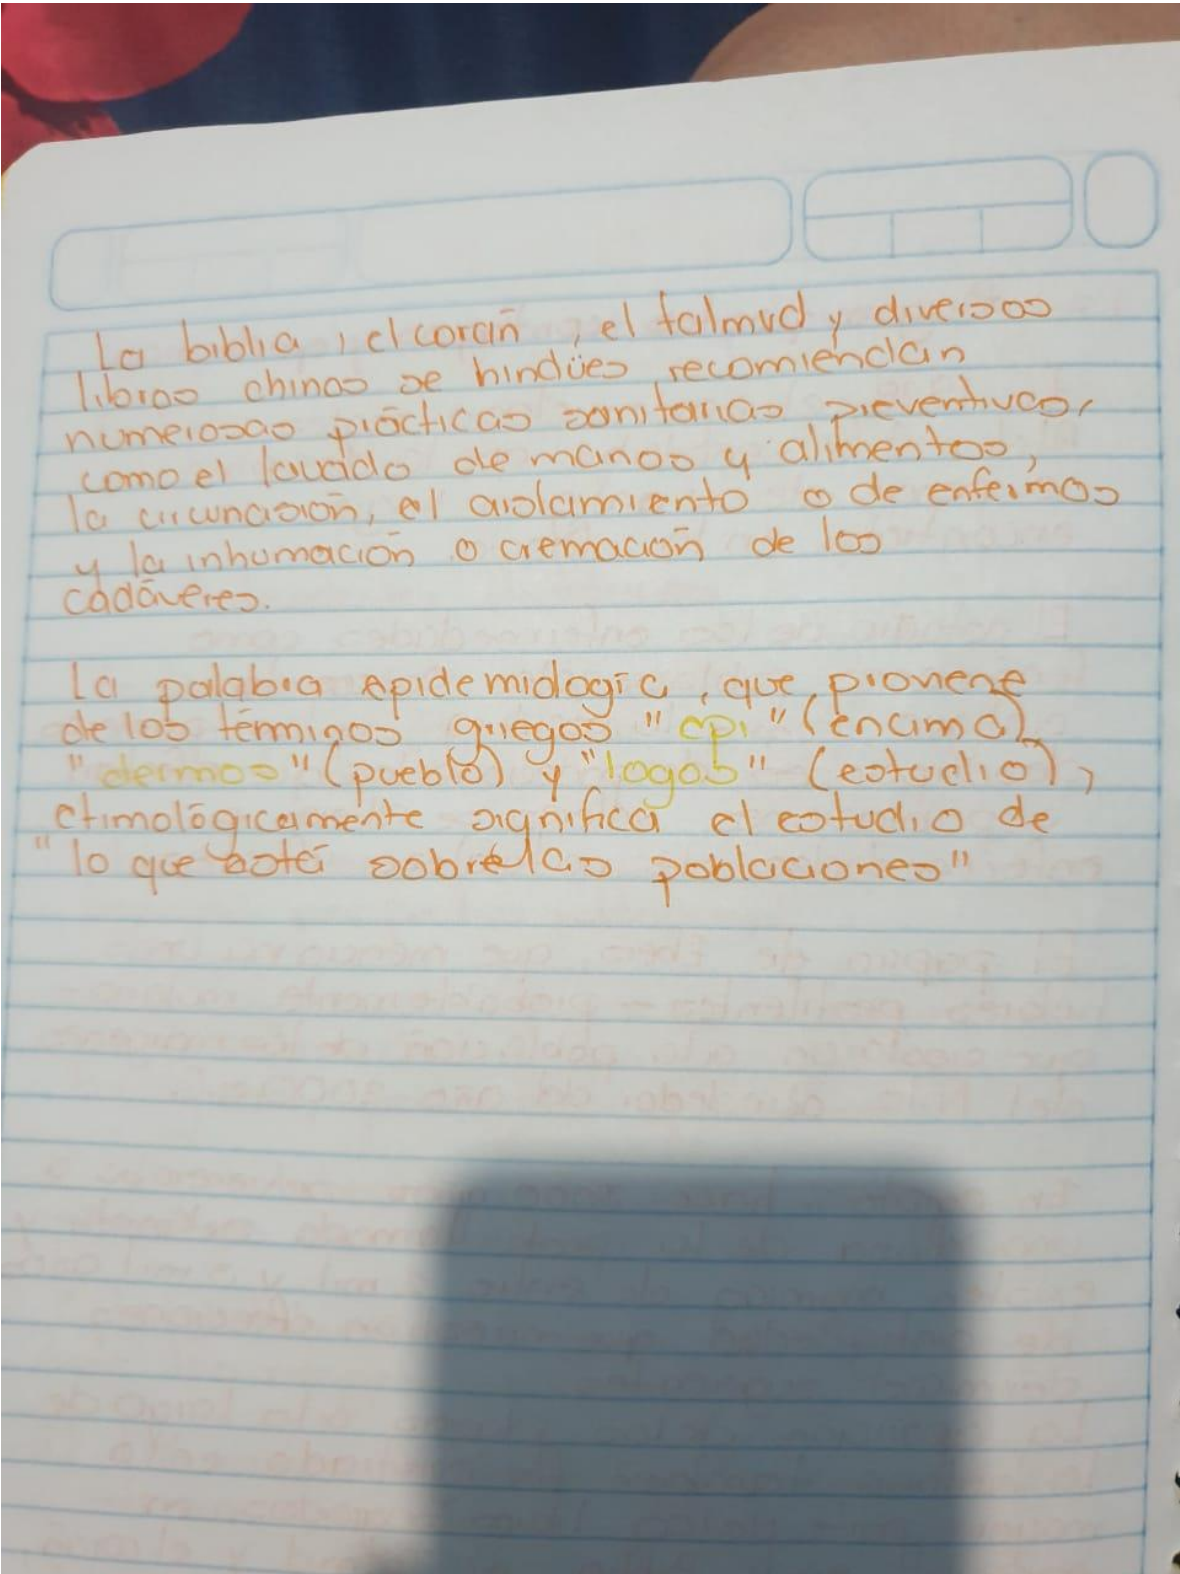 La biblia, el corán, el talmud y diversos
libros chinos se hindües recomiendan
numerosas prácticas sanitarias preventivas,
como el lavado de manos y alimentos,
la circuncisión, el aislamiento o de enfermos
y la inhumación o cremación de los
cadáveres.
La palabra epidemiología, que, provene
de los términos griegos "epi" (encima)
"dermos" (pueblo) y "logos" (estudio),
etimológicamente significa el estudio de
"lo que está sobre las poblaciones"